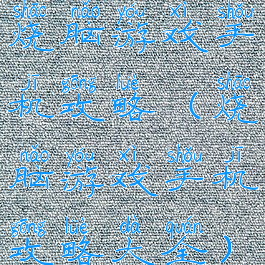 shāo nǎo yóu xì shǒu
烧脑游戏手
jī gōng lüè shāo
机攻略（烧
nǎo yóu xì shǒu jī
脑游戏手机
gōng lüè dà quán
攻略大全）